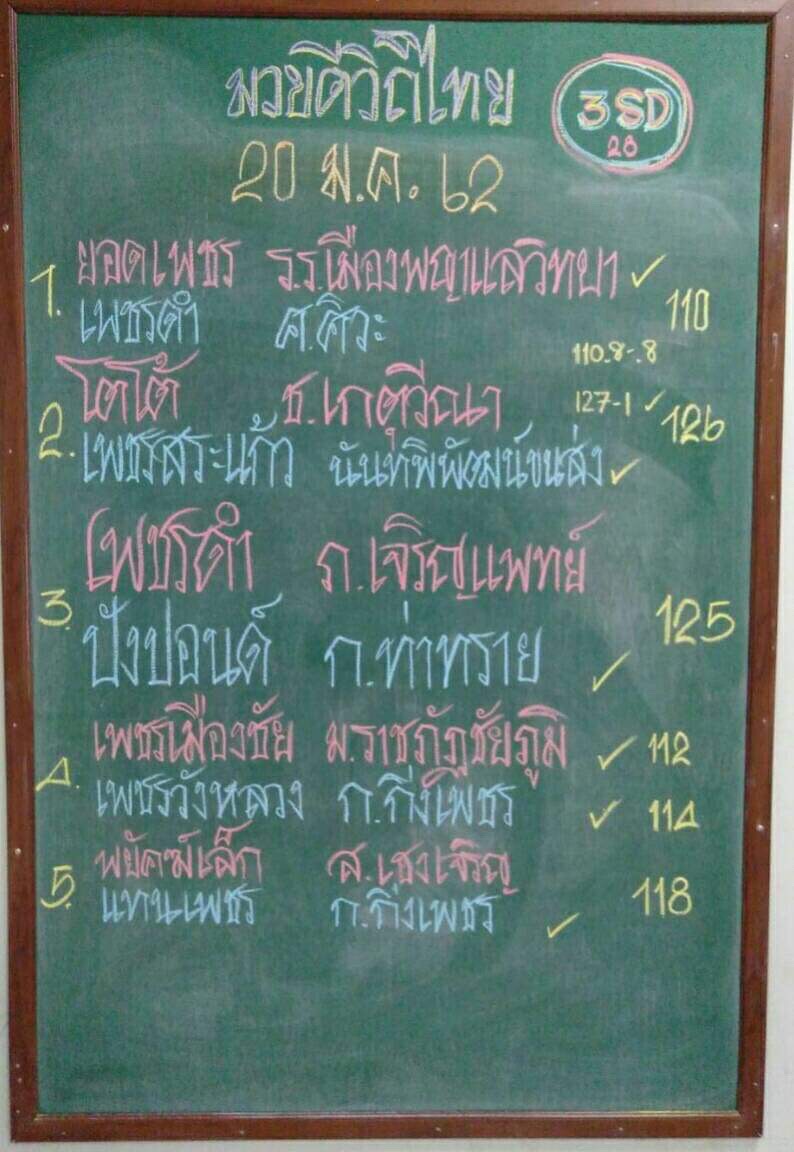 มวยดีวิถีไทย
3SD
28
20 ม.ค. 62
1. ยอดเพชร ร.ร.เมืองพญาแลวิทยา ✓ 110
เพชรดำ ศ.ศิวะ
110.8-.8
โตโต้ ช.เกตุวีณา 127-1 ✓ 126
2. เพชรสระแก้ว นันทพิพัฒน์ขนส่ง ✓
เพชรดำ ภ.เจริญแพทย์
3. ปังปอนด์ ก.ท่าทราย ✓ 125
เพชรเมืองชัย ม.ราชภัฏชัยภูมิ ✓ 112
4. เพชรวังหลวง ก.กิ่งเพชร ✓ 114
พยัคฆ์เล็ก ส.เฮงเจริญ
5. แทนเพชร ก.กิ่งเพชร ✓ 118